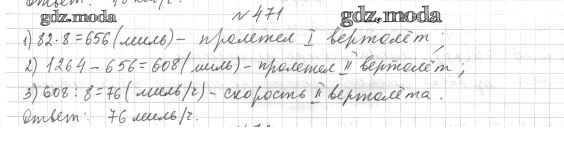 № 471
gdz.moda gdz.moda
1) 82·8=656 (миль) - пролетел I вертолёт;
2) 1264 - 656=608 (миль) - пролетел II вертолёт;
3) 608 : 8=76 (миль/г) - скорость II вертолёта.
Ответ: 76 миль/г.